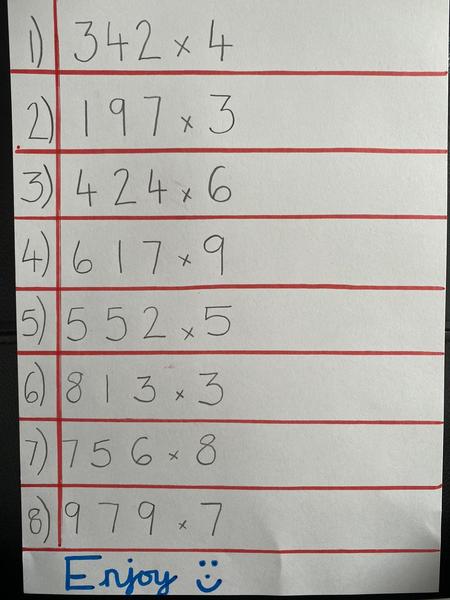 1) 342 × 4
2) 197 × 3
3) 424 × 6
4) 617 × 9
5) 552 × 5
6) 813 × 3
7) 756 × 8
8) 979 × 7
Enjoy